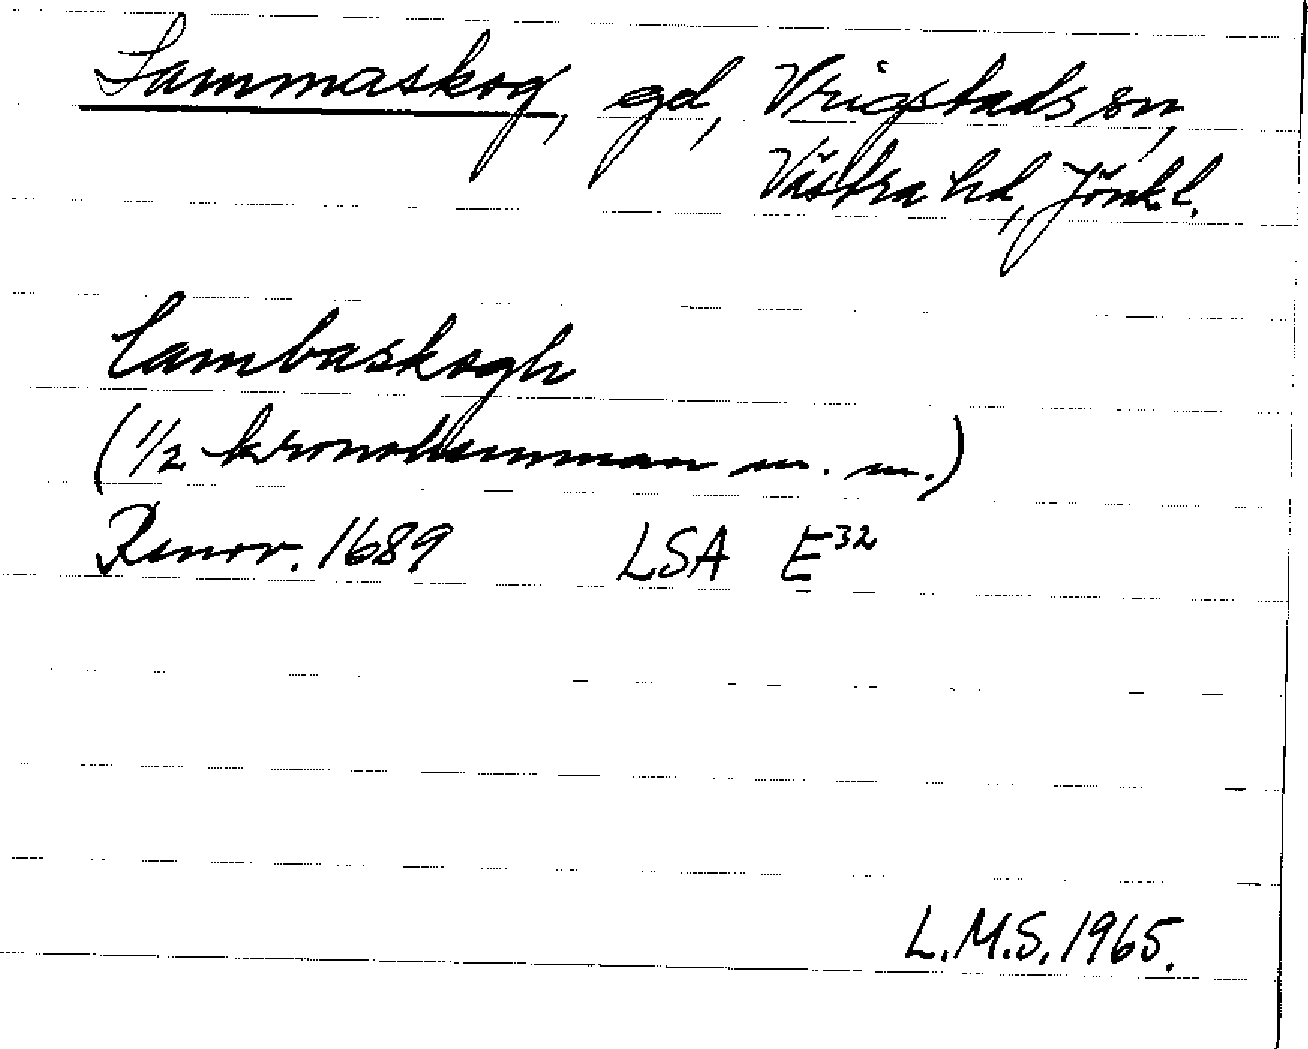 Lammaskog, gd, Vrigstads sn,
Västra hd, Jönk.l.
Lambaskogh
(1/2 kronohemman m.m.)
Renov. 1689 LSA E32
L.M.S. 1965.